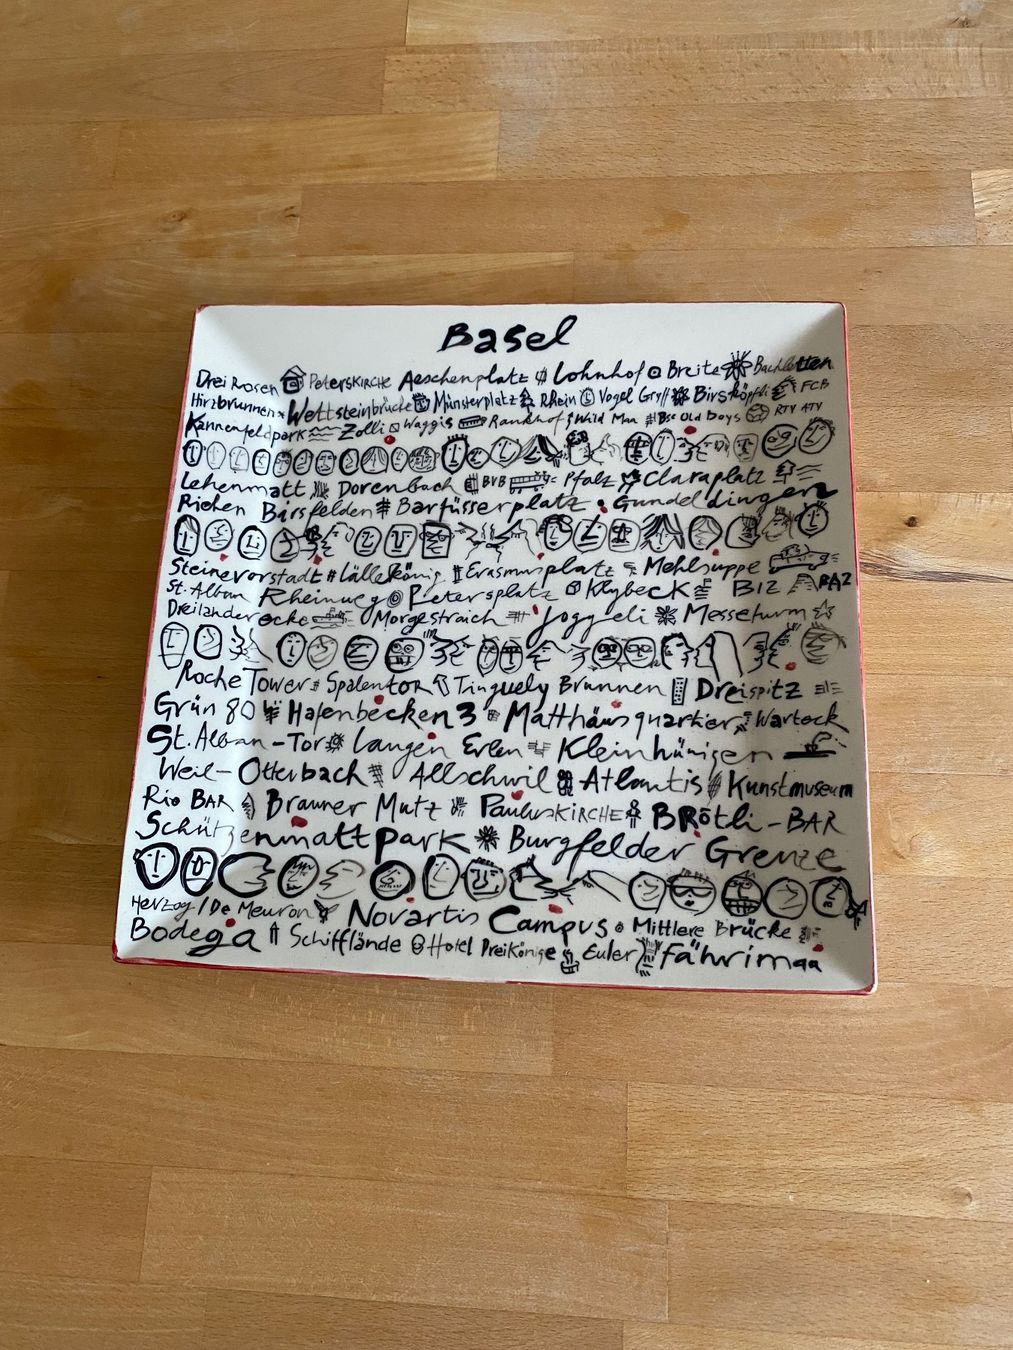 Basel
Drei Rosen Peterskirche Aeschenplatz Lohnhof Breite Bachletten
Hirzbrunnen Wettsteinbrücke Münsterplatz Rhein Vogel Gryff Birsköpfli FCB
Kannenfeldpark Zolli Waggis Rankhof Wild Maa BSC Old Boys RTV ATV
Lehenmatt Dorenbach BVB Pfalz Claraplatz
Riehen Birsfelden Barfüsserplatz Gundeldingen
Steinevorstadt Lällekönig Erasmusplatz Mehlsuppe
St. Alban Rheinweg Petersplatz Klybeck BIZ BAZ
Dreiländerecke Morgestraich Joggeli Messeturm
Roche Tower Spalentor Tinguely Brunnen Dreispitz
Grün 80 Hafenbecken 3 Matthäusquartier Warteck
St. Alban-Tor Langen Erlen Kleinhünigen
Weil-Otterbach Allschwil Atlantis Kunstmuseum
Rio BAR Brauner Mutz Pauluskirche Brötli-BAR
Schützenmattpark Burgfelder Grenze
Herzog / De Meuron Novartis Campus Mittlere Brücke
Bodega Schifflände Hotel Drei Könige Euler Fährimaa